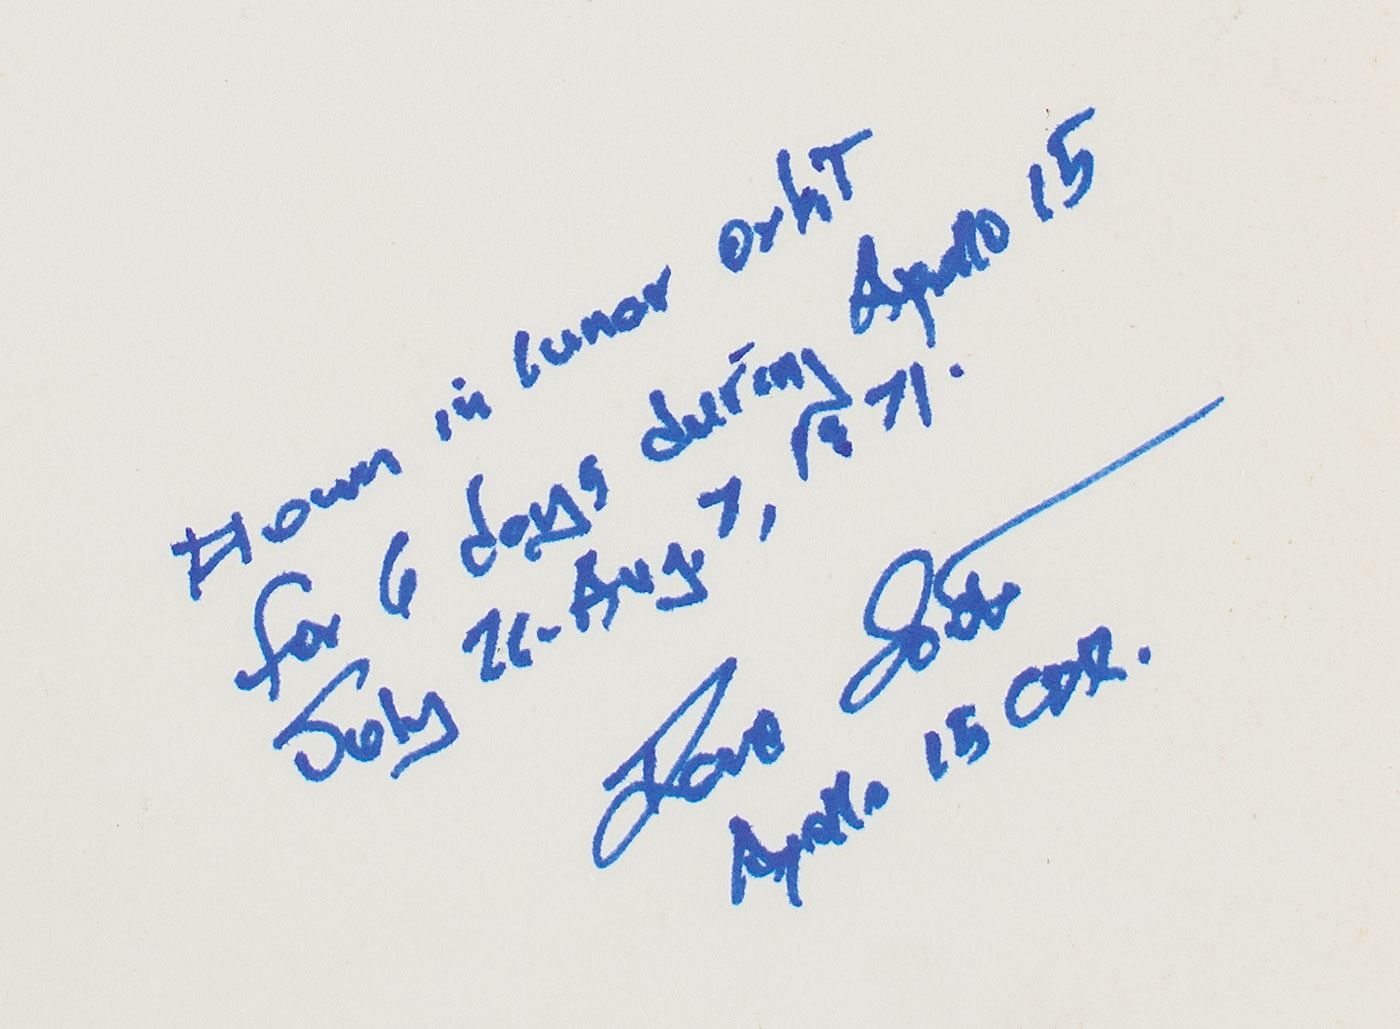 Flown in lunar orbit
for 6 days during Apollo 15
July 26-Aug. 7, 1971.
Dave Scott
Apollo 15 CDR.